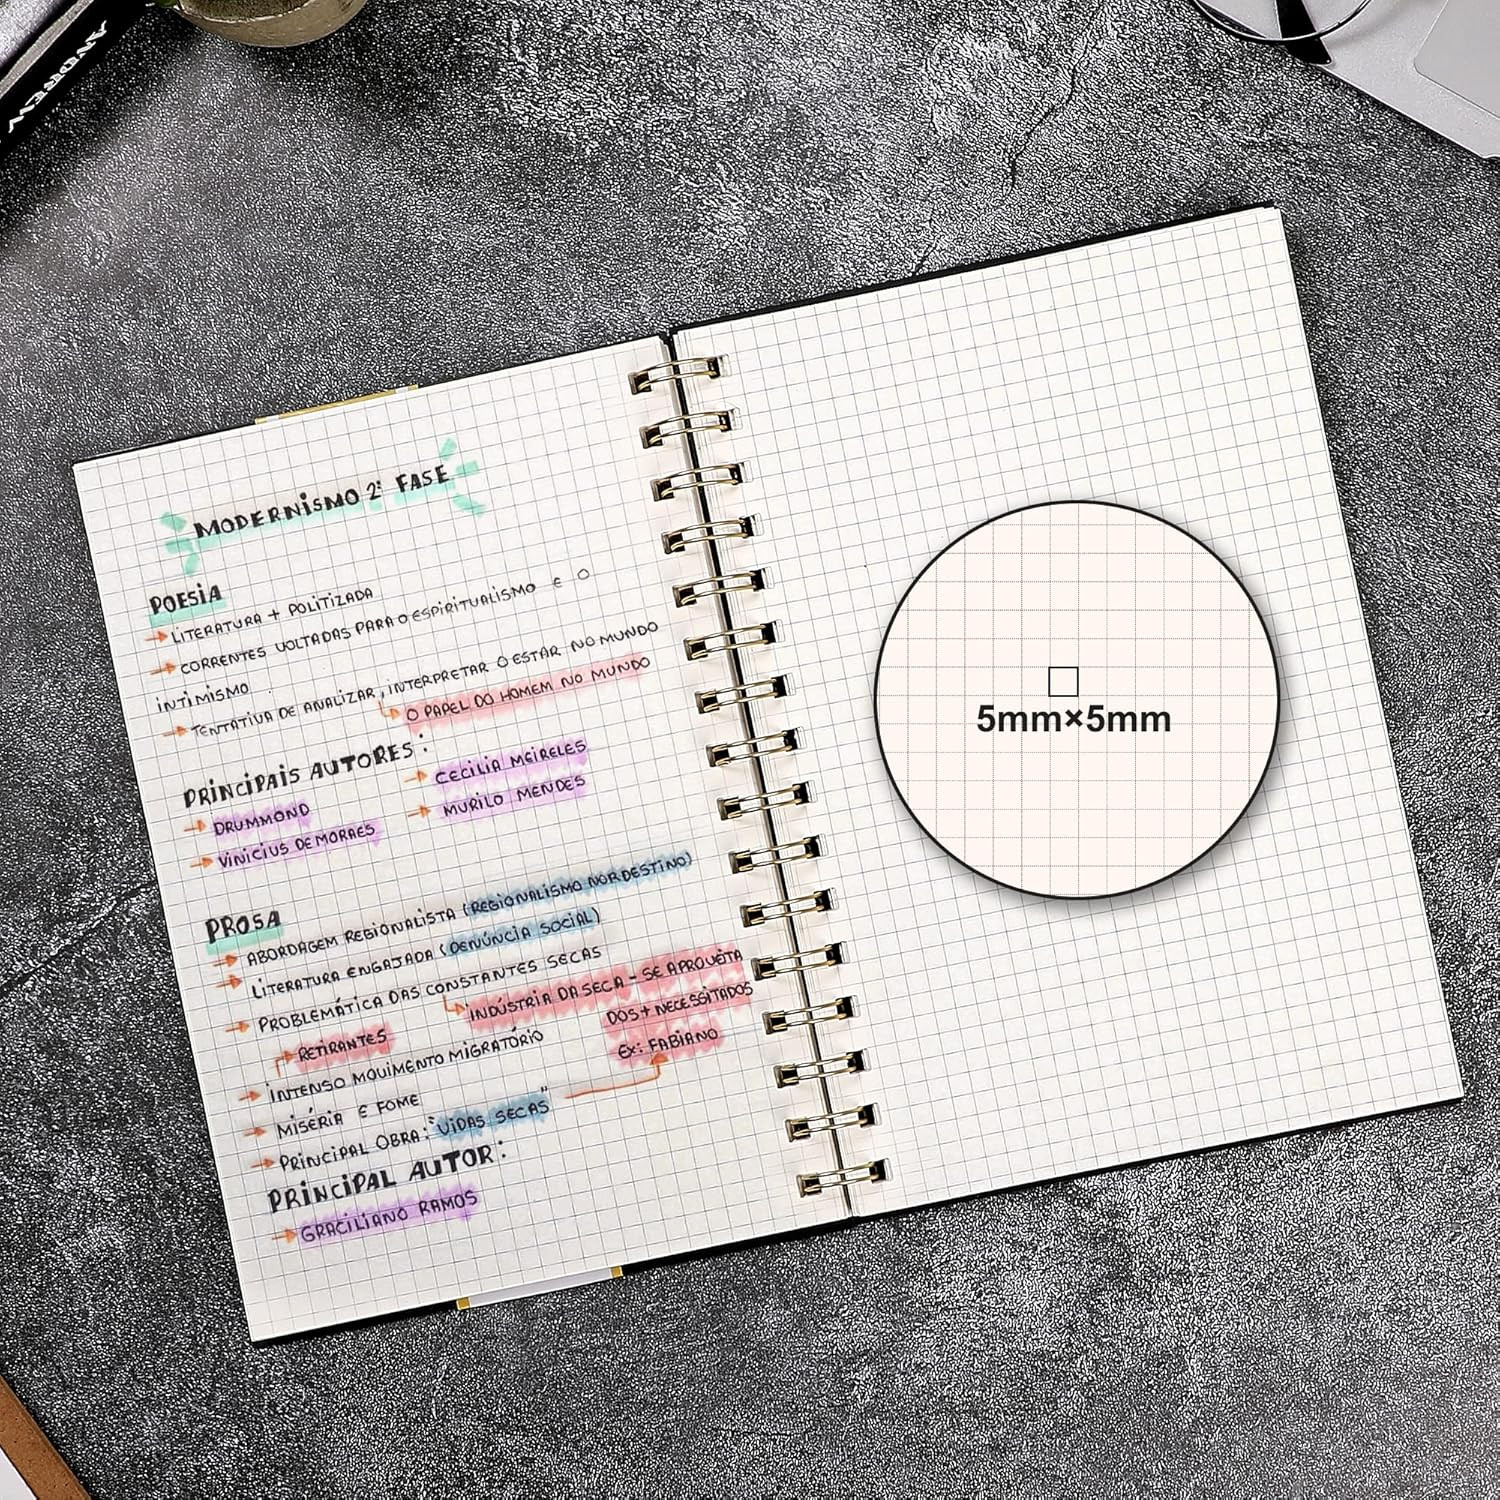 ANDREW
MODERNISMO 2ª FASE
POESIA
→ LITERATURA + POLITIZADA
→ CORRENTES VOLTADAS PARA O ESPIRITUALISMO E O
INTIMISMO
→ TENTATIVA DE ANALIZAR, INTERPRETAR O ESTAR NO MUNDO
↳ O PAPEL DO HOMEM NO MUNDO
PRINCIPAIS AUTORES:
→ DRUMMOND
→ VINICIUS DE MORAES
→ CECILIA MEIRELES
→ MURILO MENDES
PROSA
→ ABORDAGEM REGIONALISTA (REGIONALISMO NORDESTINO)
→ LITERATURA ENGAJADA (DENÚNCIA SOCIAL)
→ PROBLEMÁTICA DAS CONSTANTES SECAS
↳ INDÚSTRIA DA SECA - SE APROVEITA
DOS + NECESSITADOS
Ex: FABIANO
RETIRANTES
→ INTENSO MOVIMENTO MIGRATÓRIO
→ MISÉRIA E FOME
→ PRINCIPAL OBRA: "VIDAS SECAS"
PRINCIPAL AUTOR:
→ GRACILIANO RAMOS
5mm×5mm